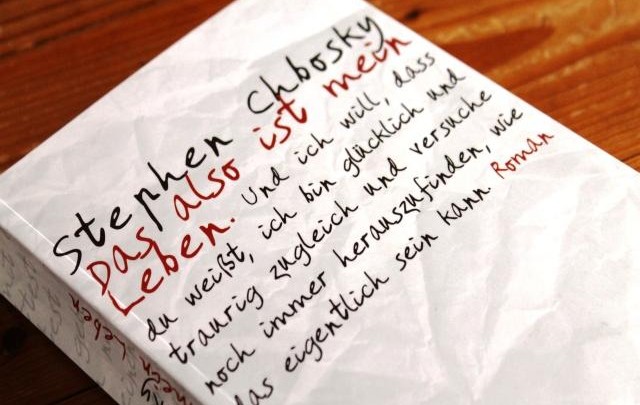 Stephen Chbosky
Das also ist mein
Leben. Und ich will, dass
du weißt, ich bin glücklich und
traurig zugleich und versuche
noch immer herauszufinden, wie
das eigentlich sein kann. Roman
mein Leben